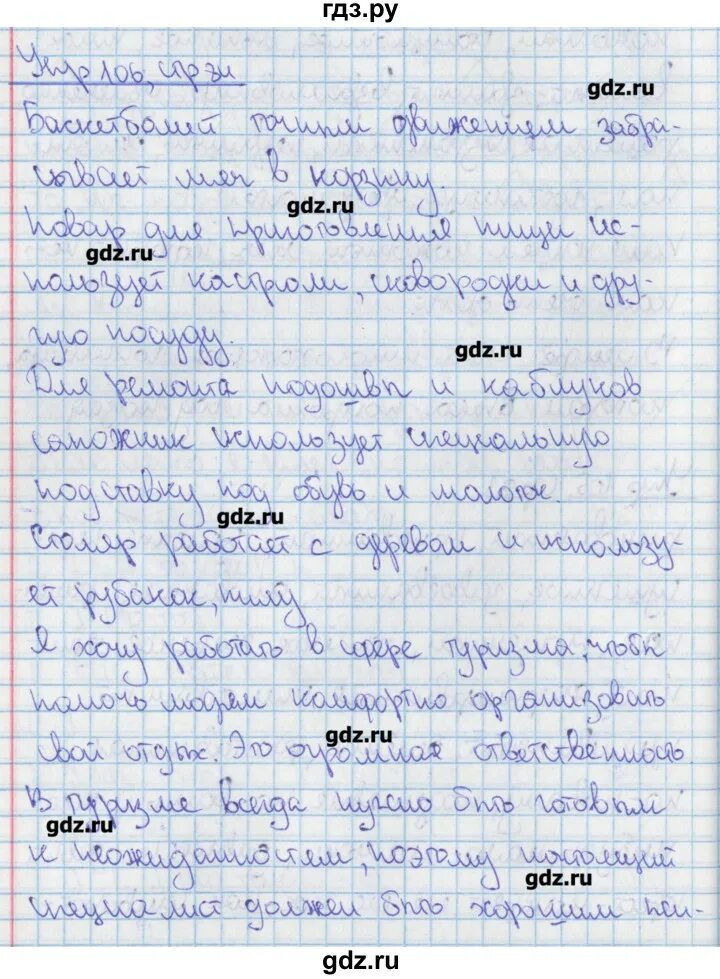 гдз.ру
Упр 106, стр 31
gdz.ru
Баскетболист точным движением забра-
сывает мяч в корзину.
gdz.ru
Повар для приготовления пищи ис-
gdz.ru
пользует кастрюли, сковородки и дру-
гую посуду.
gdz.ru
Для ремонта подошвы и каблуков
сапожник использует специальную
подставку под обувь и молоток.
gdz.ru
Столяр работает с деревом и использу-
ет рубанок, пилу
Я хочу работать в сфере туризма, чтобы
помочь людям комфортно организовать
gdz.ru
свой отдых. Это огромная ответственность
В туризме всегда нужно быть готовым
gdz.ru
к неожиданностям, поэтому настоящий
gdz.ru
специалист должен быть хорошим пси-
gdz.ru